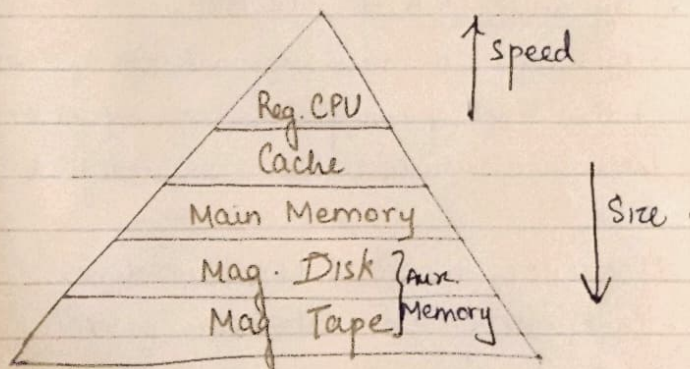 Speed
Reg. CPU
Cache
Main Memory
Size
Mag. Disk
Aux.
Mag Tape
Memory